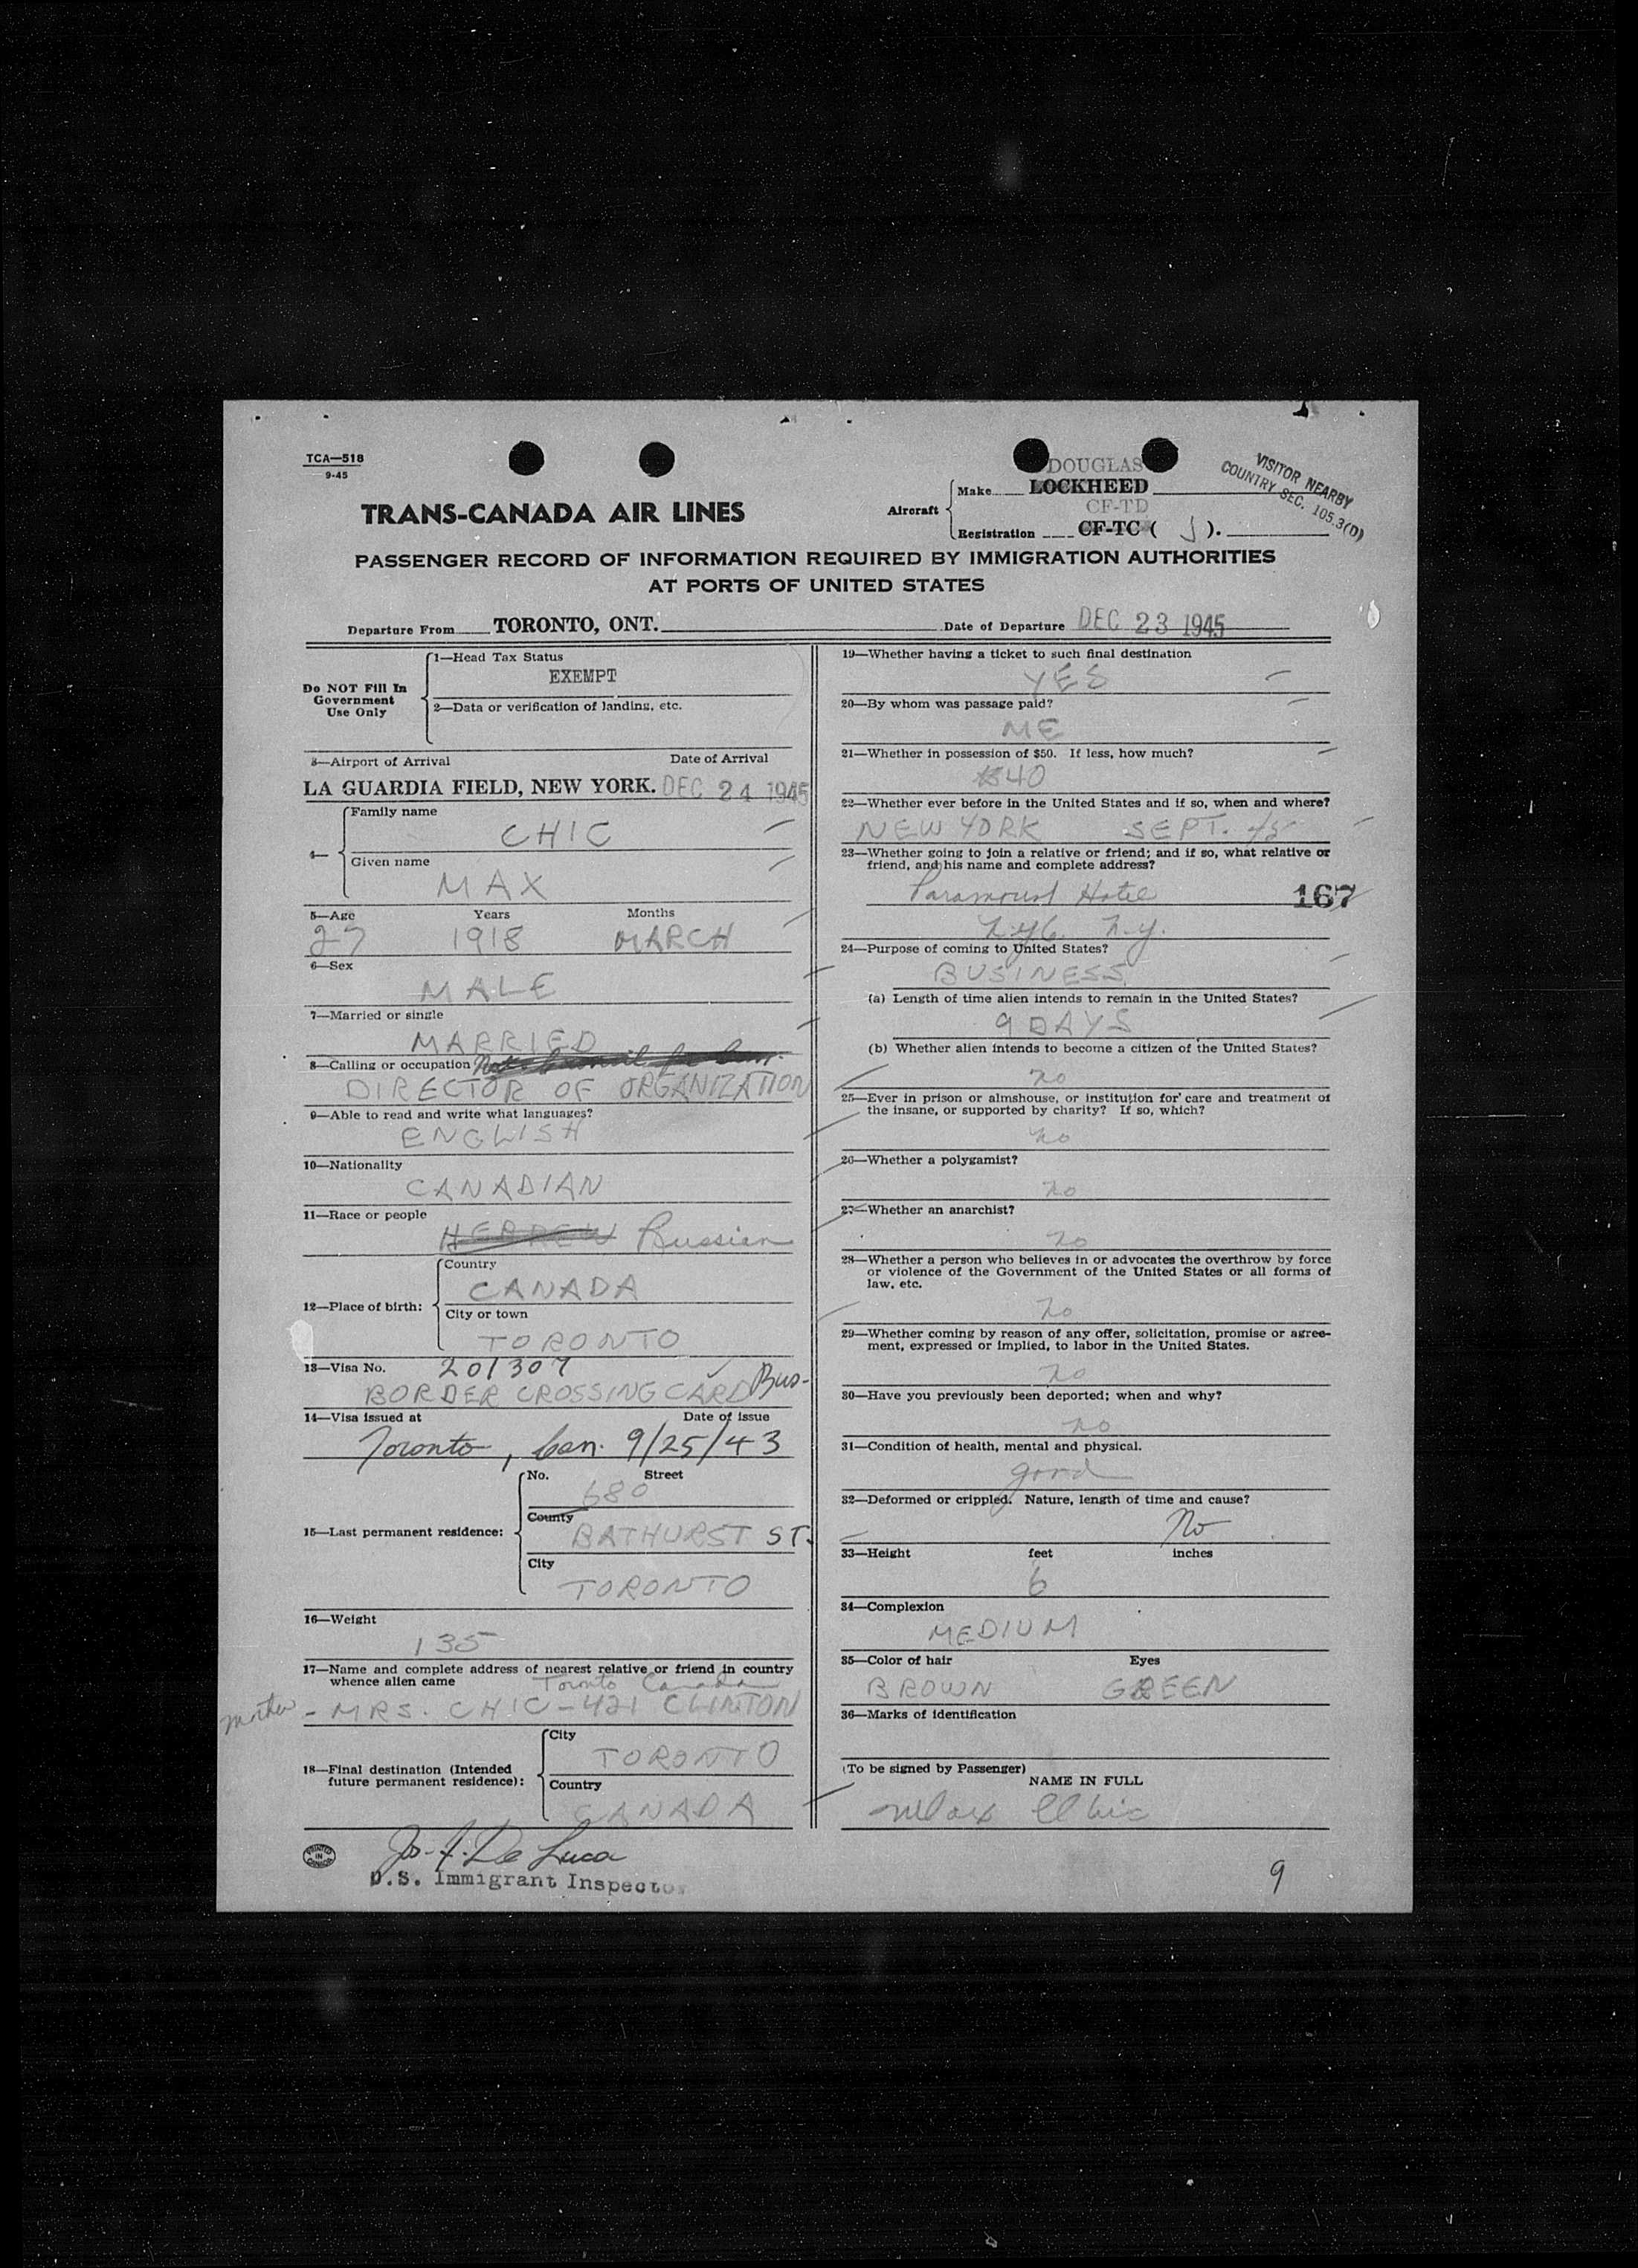 TCA—518
9-45
TRANS-CANADA AIR LINES
DOUGLAS
Aircraft
Make LOCKHEED
CF-TD
Registration CF-TC ( J ).
VISITOR NEARBY
COUNTRY SEC. 105.3(D)
PASSENGER RECORD OF INFORMATION REQUIRED BY IMMIGRATION AUTHORITIES
AT PORTS OF UNITED STATES
Departure From TORONTO, ONT. Date of Departure DEC 23 1945
Do NOT Fill In
Government
Use Only
1—Head Tax Status
EXEMPT
2—Data or verification of landing, etc.
3—Airport of Arrival Date of Arrival
LA GUARDIA FIELD, NEW YORK. DEC 24 1945
4—
Family name
CHIC
Given name
MAX
5—Age Years Months
27 1918 MARCH
6—Sex
MALE
7—Married or single
MARRIED
8—Calling or occupation
DIRECTOR OF ORGANIZATION
9—Able to read and write what languages?
ENGLISH
10—Nationality
CANADIAN
11—Race or people
HEBREW Russian
12—Place of birth:
Country
CANADA
City or town
TORONTO
13—Visa No. 201307
BORDER CROSSING CARD Bus-
14—Visa issued at Date of issue
Toronto, Can. 9/25/43
15—Last permanent residence:
No. Street
680
County
BATHURST ST.
City
TORONTO
16—Weight
135
17—Name and complete address of nearest relative or friend in country
whence alien came Toronto Canada
mother - MRS. CHIC - 421 CLINTON
18—Final destination (Intended
future permanent residence):
City
TORONTO
Country
CANADA
Jos. F. De Luca
U.S. Immigrant Inspector
PRINTED IN CANADA
19—Whether having a ticket to such final destination
YES
20—By whom was passage paid?
ME
21—Whether in possession of $50. If less, how much?
$40
22—Whether ever before in the United States and if so, when and where?
NEW YORK SEPT. 45
23—Whether going to join a relative or friend; and if so, what relative or
friend, and his name and complete address?
Paramount Hotel 167
N.Y.C. N.Y.
24—Purpose of coming to United States?
BUSINESS
(a) Length of time alien intends to remain in the United States?
9 DAYS
(b) Whether alien intends to become a citizen of the United States?
no
25—Ever in prison or almshouse, or institution for care and treatment of
the insane, or supported by charity? If so, which?
no
26—Whether a polygamist?
no
27—Whether an anarchist?
no
28—Whether a person who believes in or advocates the overthrow by force
or violence of the Government of the United States or all forms of
law, etc.
no
29—Whether coming by reason of any offer, solicitation, promise or agree-
ment, expressed or implied, to labor in the United States.
no
30—Have you previously been deported; when and why?
no
31—Condition of health, mental and physical.
good
32—Deformed or crippled. Nature, length of time and cause?
No
33—Height feet inches
6
34—Complexion
MEDIUM
35—Color of hair Eyes
BROWN GREEN
36—Marks of identification
(To be signed by Passenger)
NAME IN FULL
Max Chic
9